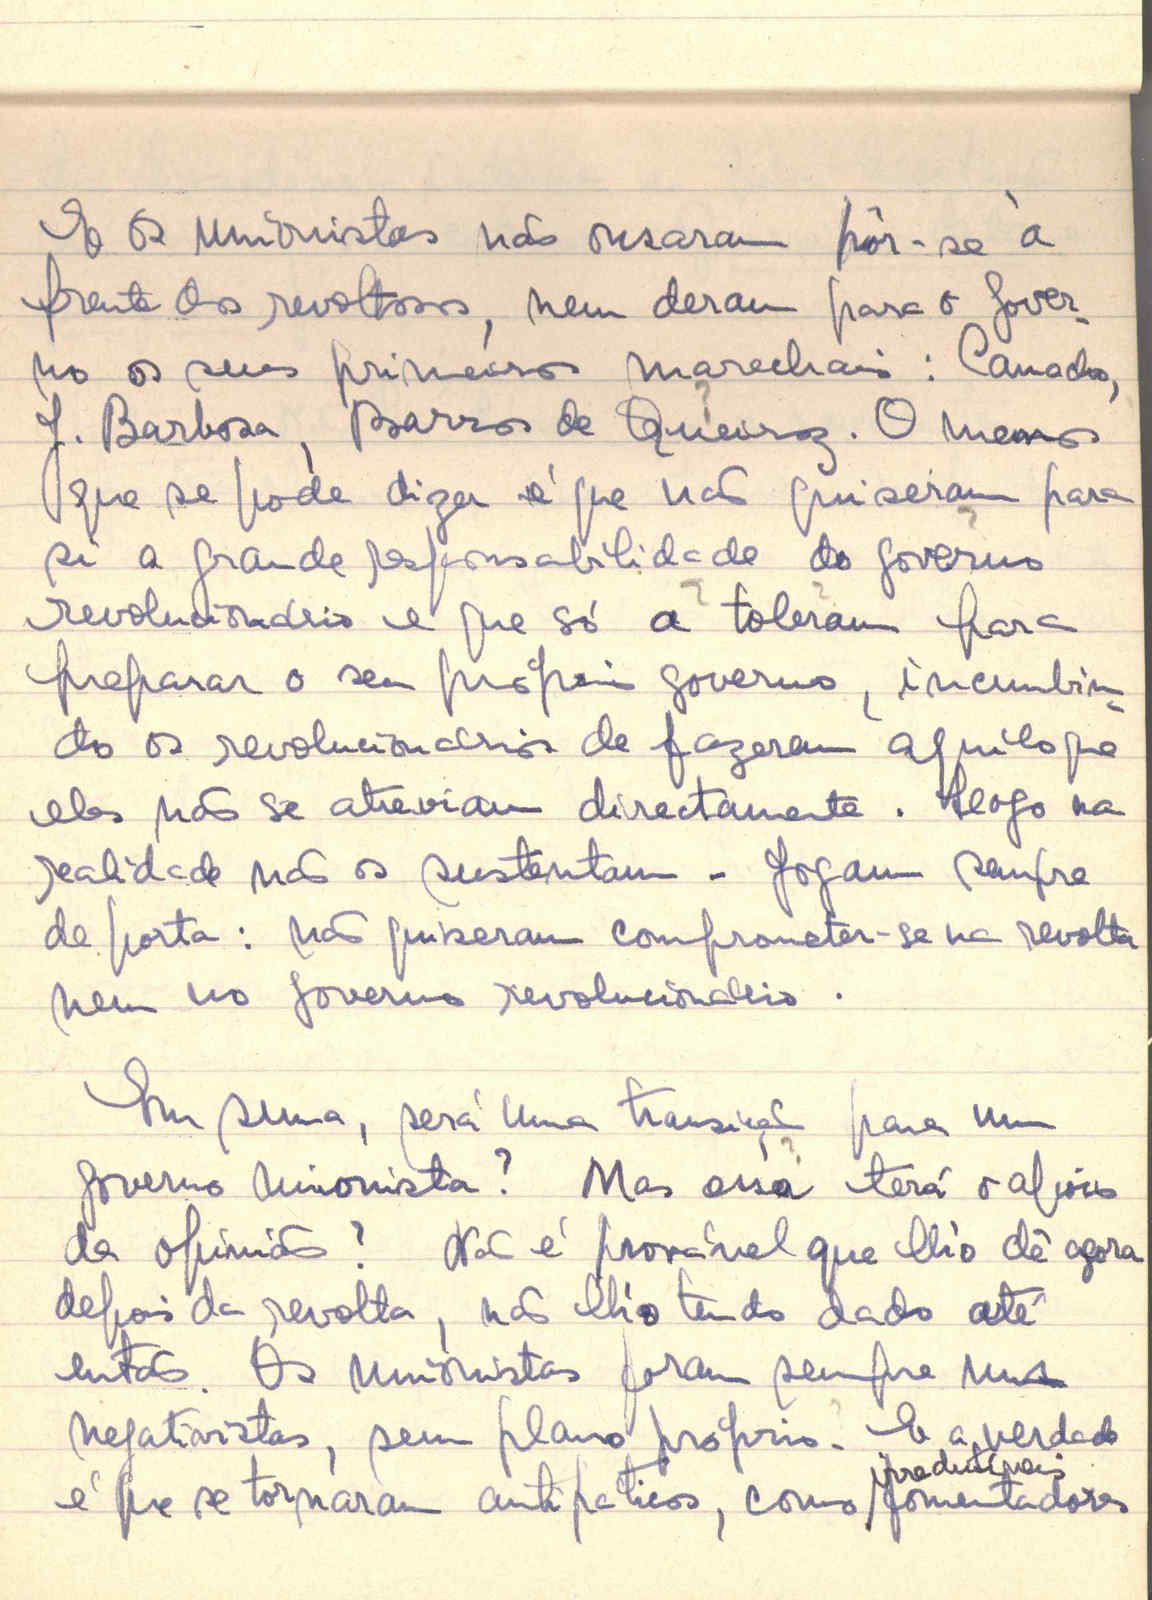 E os unionistas não ousaram pôr-se à
frente dos revoltosos, nem deram para o gover-
no os seus primeiros marechais: Camacho,
J. Barbosa, Barros de Queiroz. O menos
que se pode dizer é que não quiseram para
si a grande responsabilidade do governo
revolucionário e que só a toleram para
preparar o seu próprio governo, incumbin-
do os revolucionários de fazerem aquilo que
eles não se atreviam directamente. Logo na
realidade não os sustentam. Jogam sempre
de porta: não quiseram comprometer-se na revolta
nem no governo revolucionário.
Em suma, será uma transição para um
governo unionista? Mas essa terá o apoio
da opinião? Não é provável que lho dê agora
depois da revolta, não lho tendo dado até
então. Os unionistas foram sempre uns
negativistas, sem plano próprio. E a verdade
é que se tornaram antipáticos, como irredutíveis fomentadores